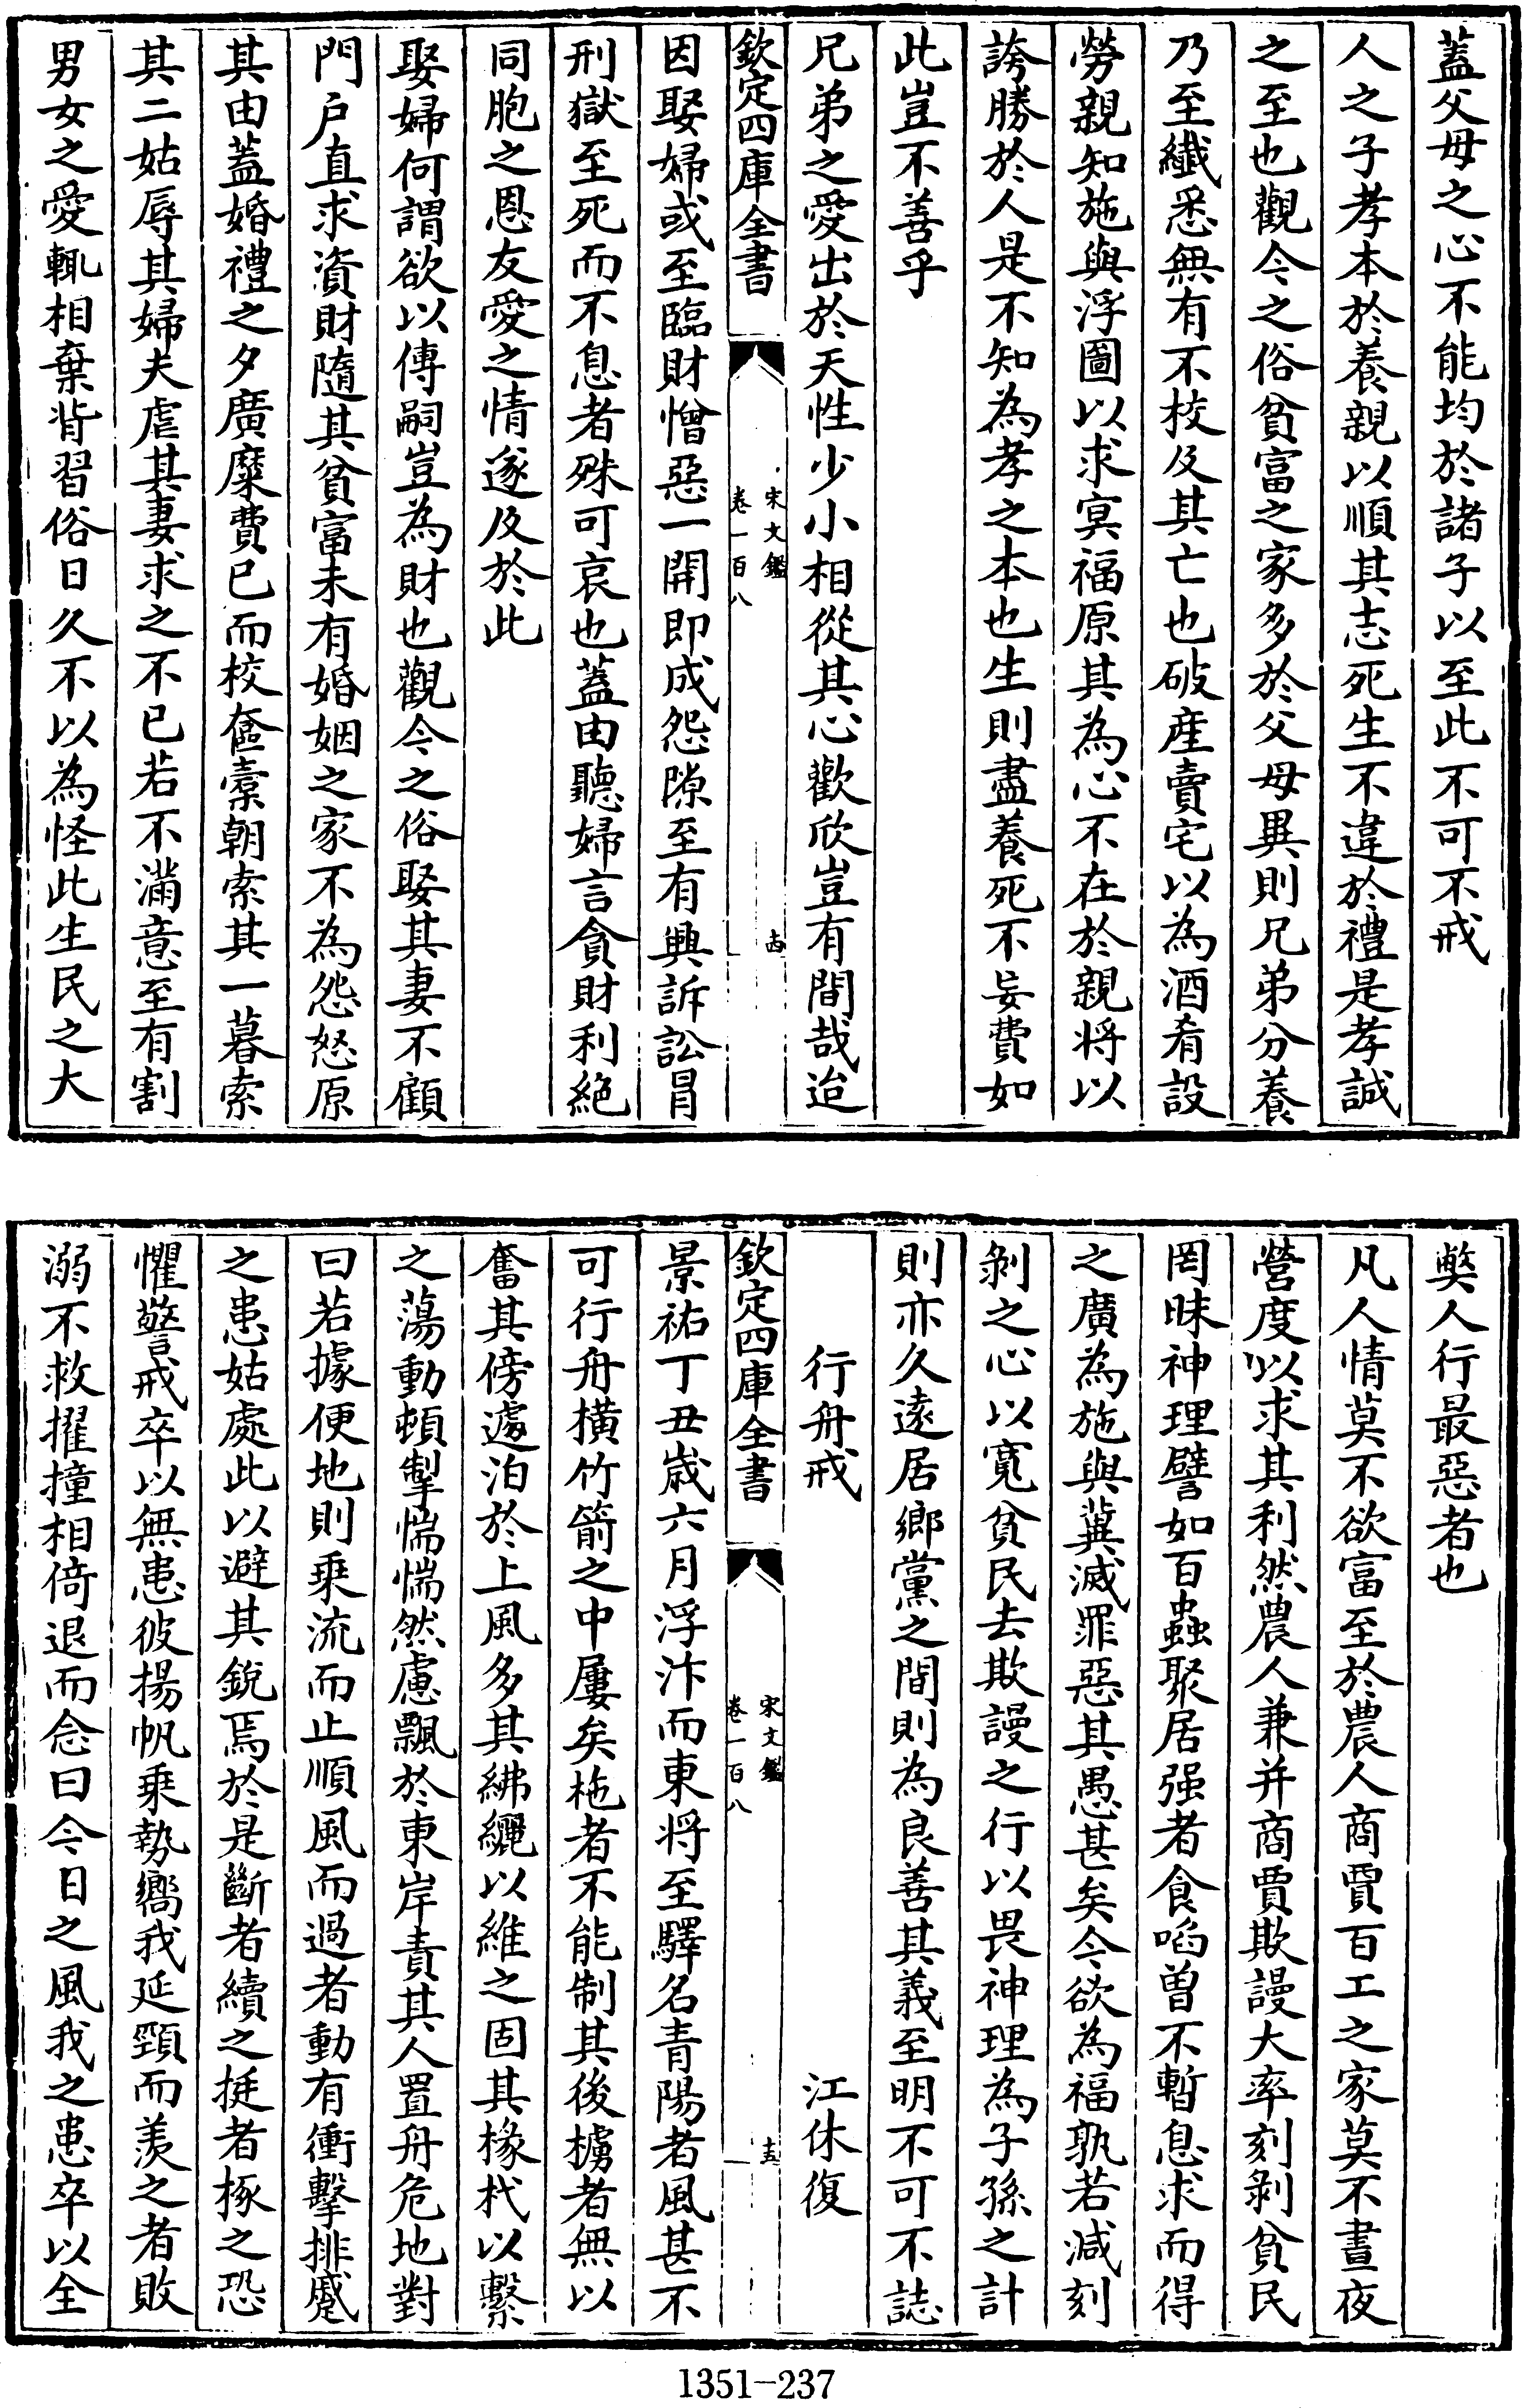 蓋父母之心不能均於諸子以至此不可不戒
人之子孝本於養親以順其志死生不違於禮是孝誠
之至也觀今之俗貧富之家多於父母異則兄弟分養
乃至纖悉無有不校及其亡也破産賣宅以為酒肴設
勞親知施與浮圖以求冥福原其為心不在於親将以
誇勝於人是不知為孝之本也生則盡養死不妄費如
此豈不善乎
兄弟之愛出於天性少小相從其心歡欣豈有間哉迨
欽定四庫全書
宋文鑑
卷一百八
十四
因娶婦或至臨財憎惡一開即成怨隙至有興訴訟冒
刑獄至死而不息者殊可哀也蓋由聽婦言貪財利絶
同胞之恩友愛之情遂及於此
娶婦何謂欲以傳嗣豈為財也觀今之俗娶其妻不顧
門户直求資財隨其貧富未有婚姻之家不為怨怒原
其由蓋婚禮之夕廣糜費已而校奩橐朝索其一暮索
其二姑辱其婦夫虐其妻求之不已若不滿意至有割
男女之愛輒相棄背習俗日久不以為怪此生民之大
弊人行最惡者也
凡人情莫不欲富至於農人商賈百工之家莫不晝夜
營度以求其利然農人兼并商賈欺謾大率刻剝貧民
罔昧神理譬如百蟲聚居强者食啗曽不暫息求而得
之廣為施與冀滅罪惡其愚甚矣今欲為福孰若減刻
剝之心以寛貧民去欺謾之行以畏神理為子孫之計
則亦久遠居鄉黨之間則為良善其義至明不可不誌
行舟戒 江休復
欽定四庫全書
宋文鑑
卷一百八
十五
景祐丁丑歲六月浮汴而東将至驛名青陽者風甚不
可行舟横竹箭之中屢矣柂者不能制其後櫓者無以
奮其傍遽泊於上風多其紼纚以維之固其椓杙以繫
之蕩動頓掣惴惴然慮飄於東岸責其人置舟危地對
曰若據便地則乗流而止順風而過者動有衝擊排蹙
之患姑處此以避其鋭焉於是斷者續之挺者椓之恐
懼警戒卒以無患彼揚帆乗勢嚮我延頸而羡之者敗
溺不救擢撞相倚退而念曰今日之風我之患卒以全
1351-237